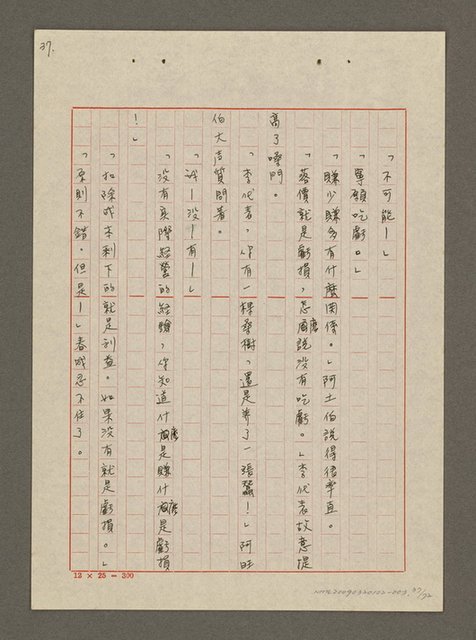 37.
「不可能！」
「寧願吃虧。」
「賺少賺多有什麼関係。」阿土伯說得很率直。
「落價就是虧損，怎麼說沒有吃虧。」李代表故意提
高了嗓門。
「李代表，你有一棵發樹，還是養了一張蠶！」阿旺
伯大声質問着。
「我－沒－有－」
「沒有真際経營的経驗，你知道什麼是賺什麼是虧損
！」
「扣除成本剩下的就是利益。如果沒有就是虧損。」
「原則不錯。但是－」春城忍不住了。
12 × 25 = 300
37/72